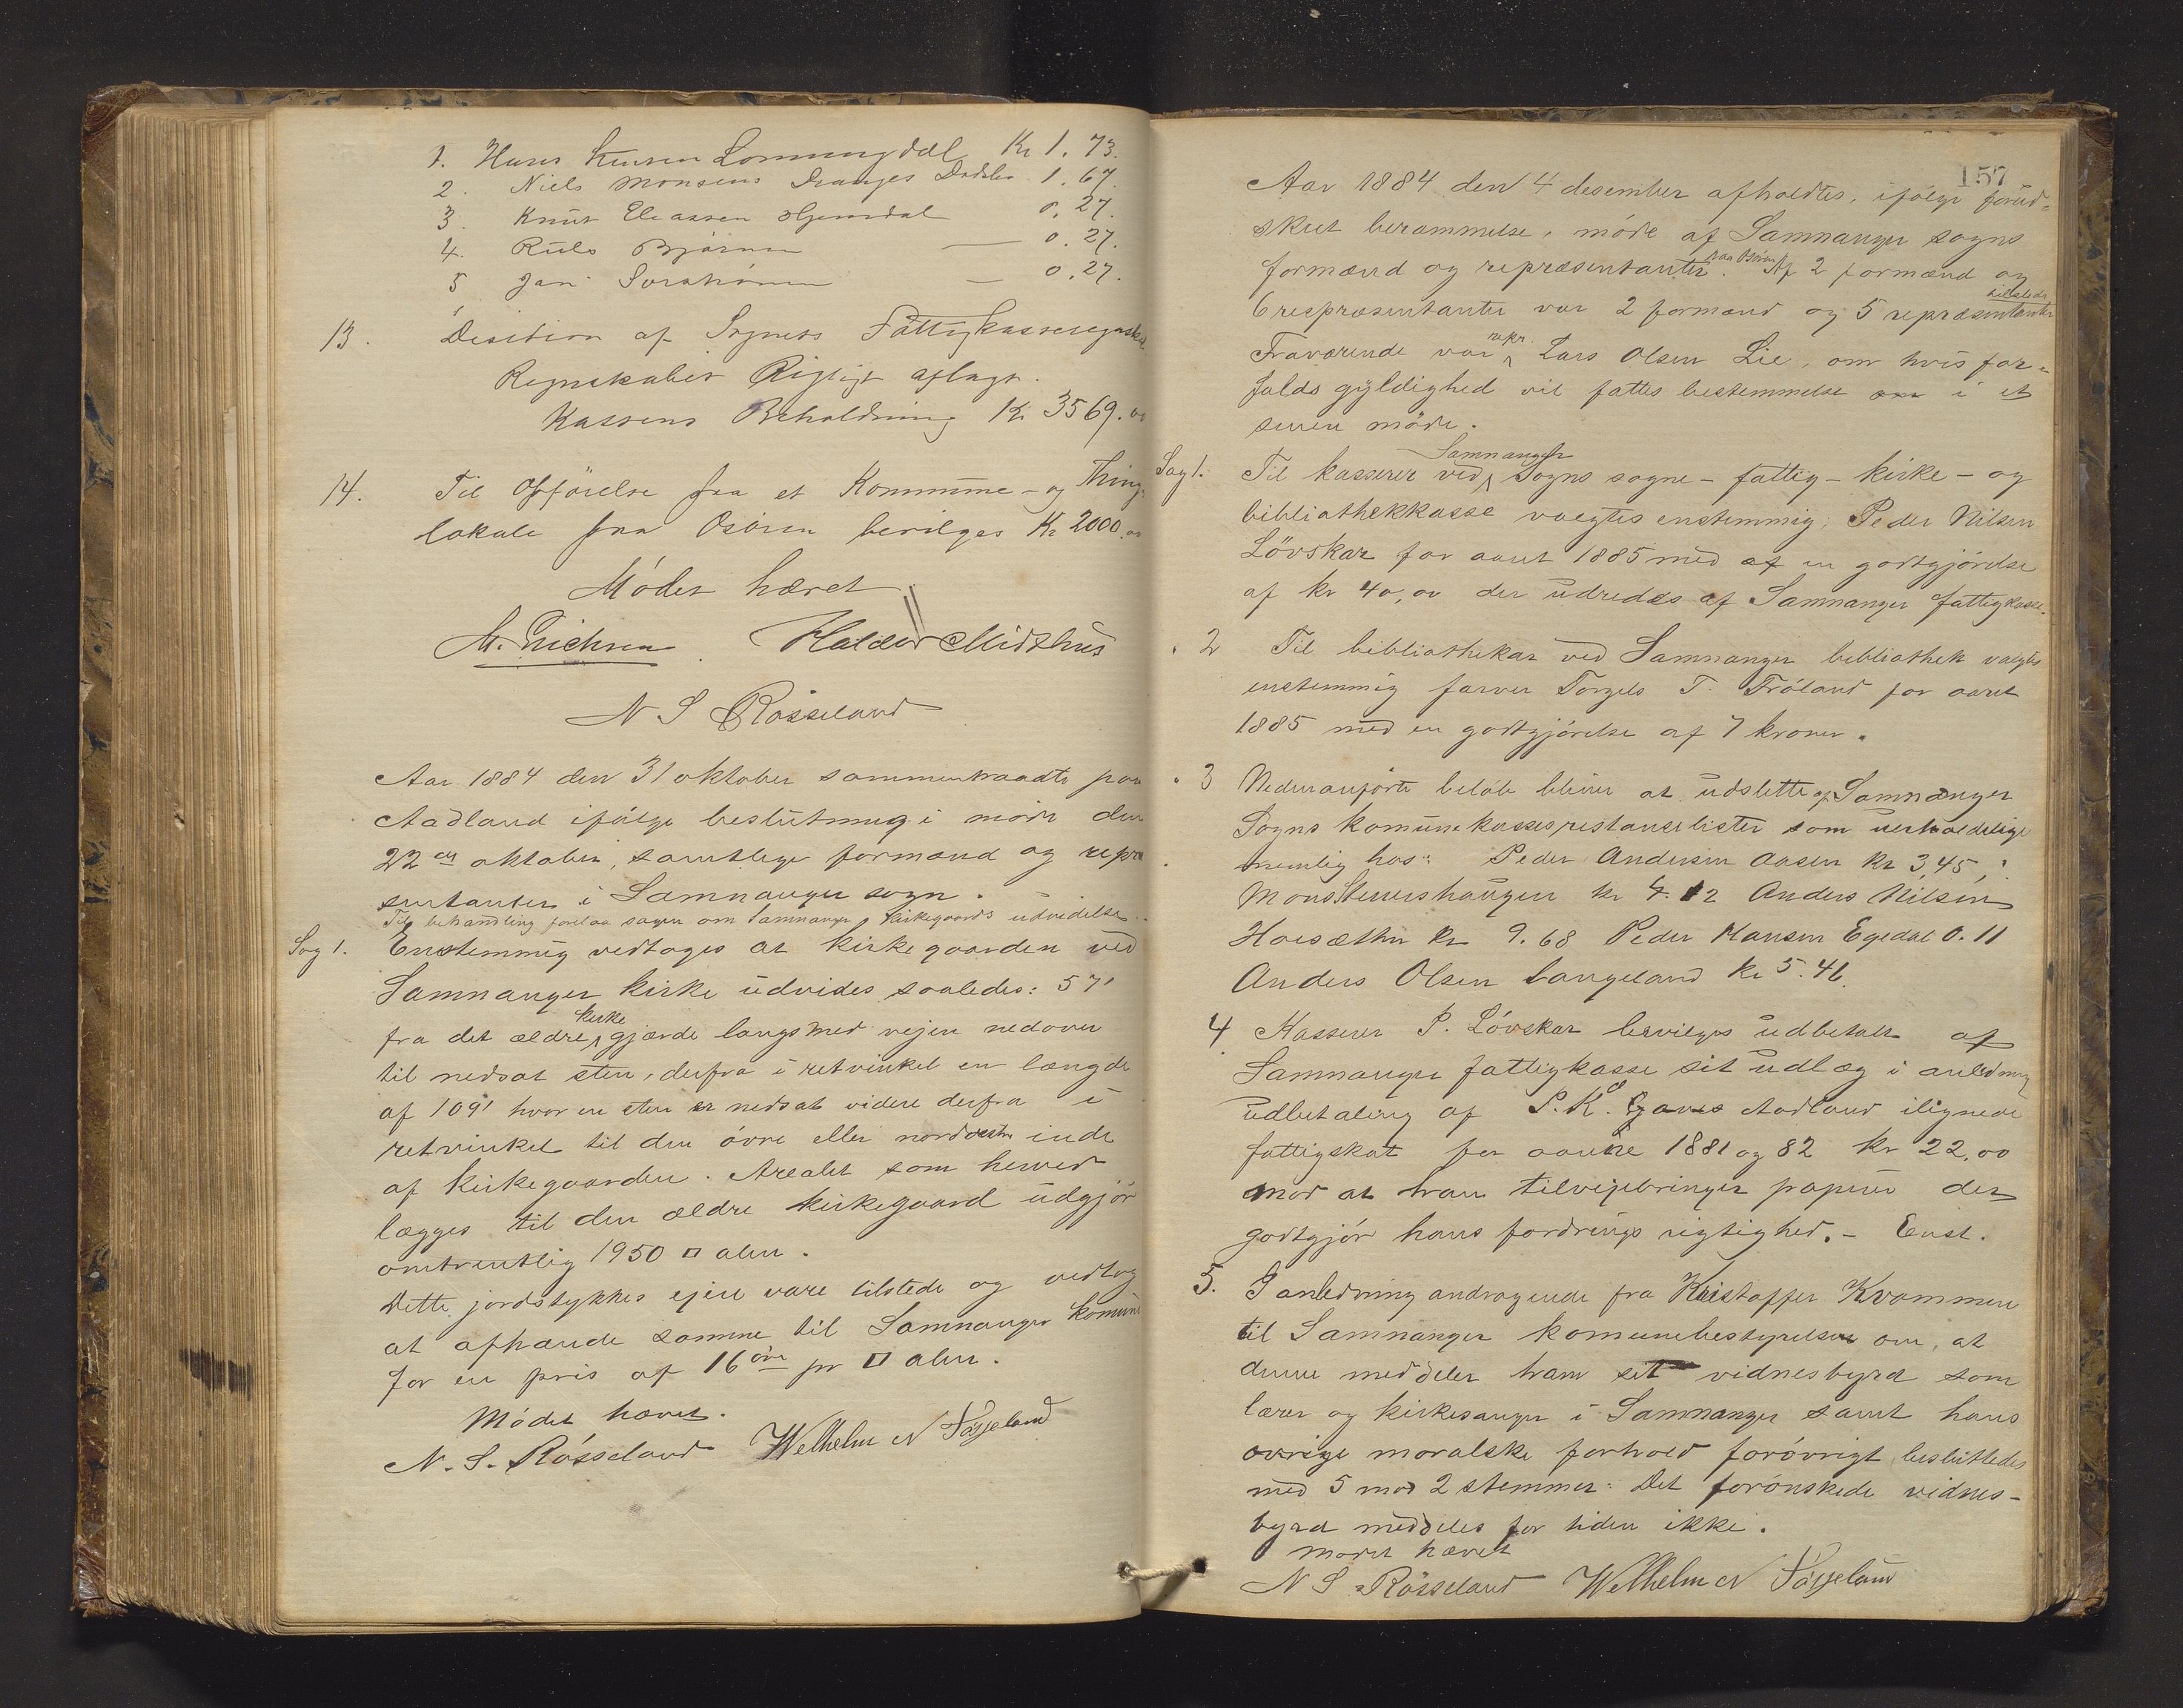 1. Hans Larsen Lønningdal Kr 1.73.
2. Niels Monsens Dranges Dødsbo 1.67.
3. Knut Eliassen Hjemdal 0.27.
4. Nils Bjånes — 0.27.
5 Jan — 0.27.
13. Desition af Sognets Fattigkasseregnskab
Regnskabet Rigtigt aflagt.
Kassens Beholdning Kr 3569.00
14. Til Opførelse paa et Kommune- og Thing-
lokale paa Osøren bevilges Kr 2000.00
Mødet hævet
M. Erichsen Haldor Midthus
N S Røsseland
Aar 1884 den 31 oktober sammentraadte paa
Aadland ifølge beslutning i møde den
22de oktober, samtlige formænd og repræ
sentanter i Samnanger sogn.
Til behandling forelaa sagen om Samnanger kirkegaards udvidelse.
Sag 1. Enstemmig vedtoges at kirkegaarden ved
Samnanger kirke udvides saaledes: 57'
fra det ældre kirke gjærde langs med vejen nedover
til nedsat sten, derfra i retvinkel en længde
af 109' hvor en sten er nedsat videre derfra i
retvinkel til den øvre eller nordvestre ende
af kirkegaarden. Arealet som herved
lægges til den ældre kirkegaard udgjør
omtrentlig 1950 □ alen.
Dette jordstykkes ejere vare tilstede og vedtog
at afhænde samme til Samnanger komune
for en pris af 16 øre pr □ alen.
Mødet hævet.
N. S. Røsseland Welhelm N Tøsseland
157
Aar 1884 den 4 desember afholdtes, ifølge forud-
skeet berammelse, møde af Samnanger sogns
formænd og repræsentanter paa Osøren. Af 2 formænd og
6 respræsentanter var 2 formænd og 5 repræsentanter tilstede
Fraværende var repr. Lars Olsen Lie, om hvis for-
falds gyldighed vil fattes bestemmelse om i et
senere møde.
Sag 1. Til kasserer ved Samnanger Sogns sogne- fattig- kirke- og
bibliothekkasse valgtes enstemmig Peder Nilsen
Løvskar for aaret 1885 med af en godtgjørelse
af kr 40,00 der udredes af Samnanger fattigkasse.
" 2 Til bibliothekar ved Samnanger bibliothek valgtes
enstemmig farver Torgels T. Frøland for aaret
1885 med en godtgjørelse af 7 kroner.
" 3 Nedenanførte beløb bliver at udslette af Samnanger
Sogns komunekasses restanselister som uerholdelige
nemlig hos: Peder Andersen Aasen kr 3,45,
Mons Steinershaugen kr 4.12 Anders Nilsen
Høisæther kr 9.68 Peder Hansen Egedal 0.11
Anders Olsen Langeland kr 5.46.
4 Kasserer P. Løvskar bevilges udbetalt af
Samnanger fattigkasse sit udlæg i anledning
udbetaling af P. K. Aadland ilignede
fattigskat for aarene 1881 og 82 kr 22.00
mod at han tilvejebringer papirer der
godtgjør hans fordrings rigtighed. – Enst.
5. I anledning andragende fra Kristoffer Kvammen
til Samnanger komunebestyrelse om, at
denne meddeler ham sit vidnesbyrd som
lærer og kirkesanger i Samnanger samt hans
øvrige moralske forhold forøvrigt besluttedes
med 5 mod 2 stemmer: Det forønskede vidnes-
byrd meddeles for tiden ikke.
Mødet hævet
N S Røsseland Welhelm N Tøsseland